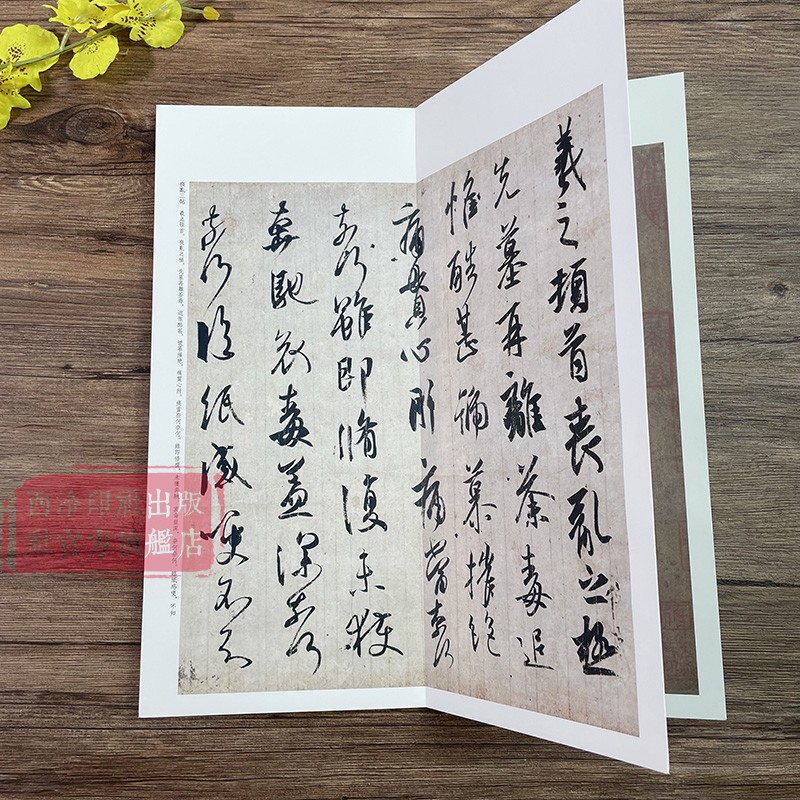 羲之頓首喪亂之極
先墓再離荼毒追
惟酷甚號慕摧絕
痛貫心肝痛當奈何
奈何雖即脩復未獲
奔馳哀毒益深奈何
奈何臨紙感哽不知
羲之頓首。喪亂之極,先墓再離荼毒,追惟酷甚,號慕摧絕,痛貫心肝,痛當奈何奈何。雖即脩復,臨紙感哽,不知
西泠印社出版
社官方旗艦店